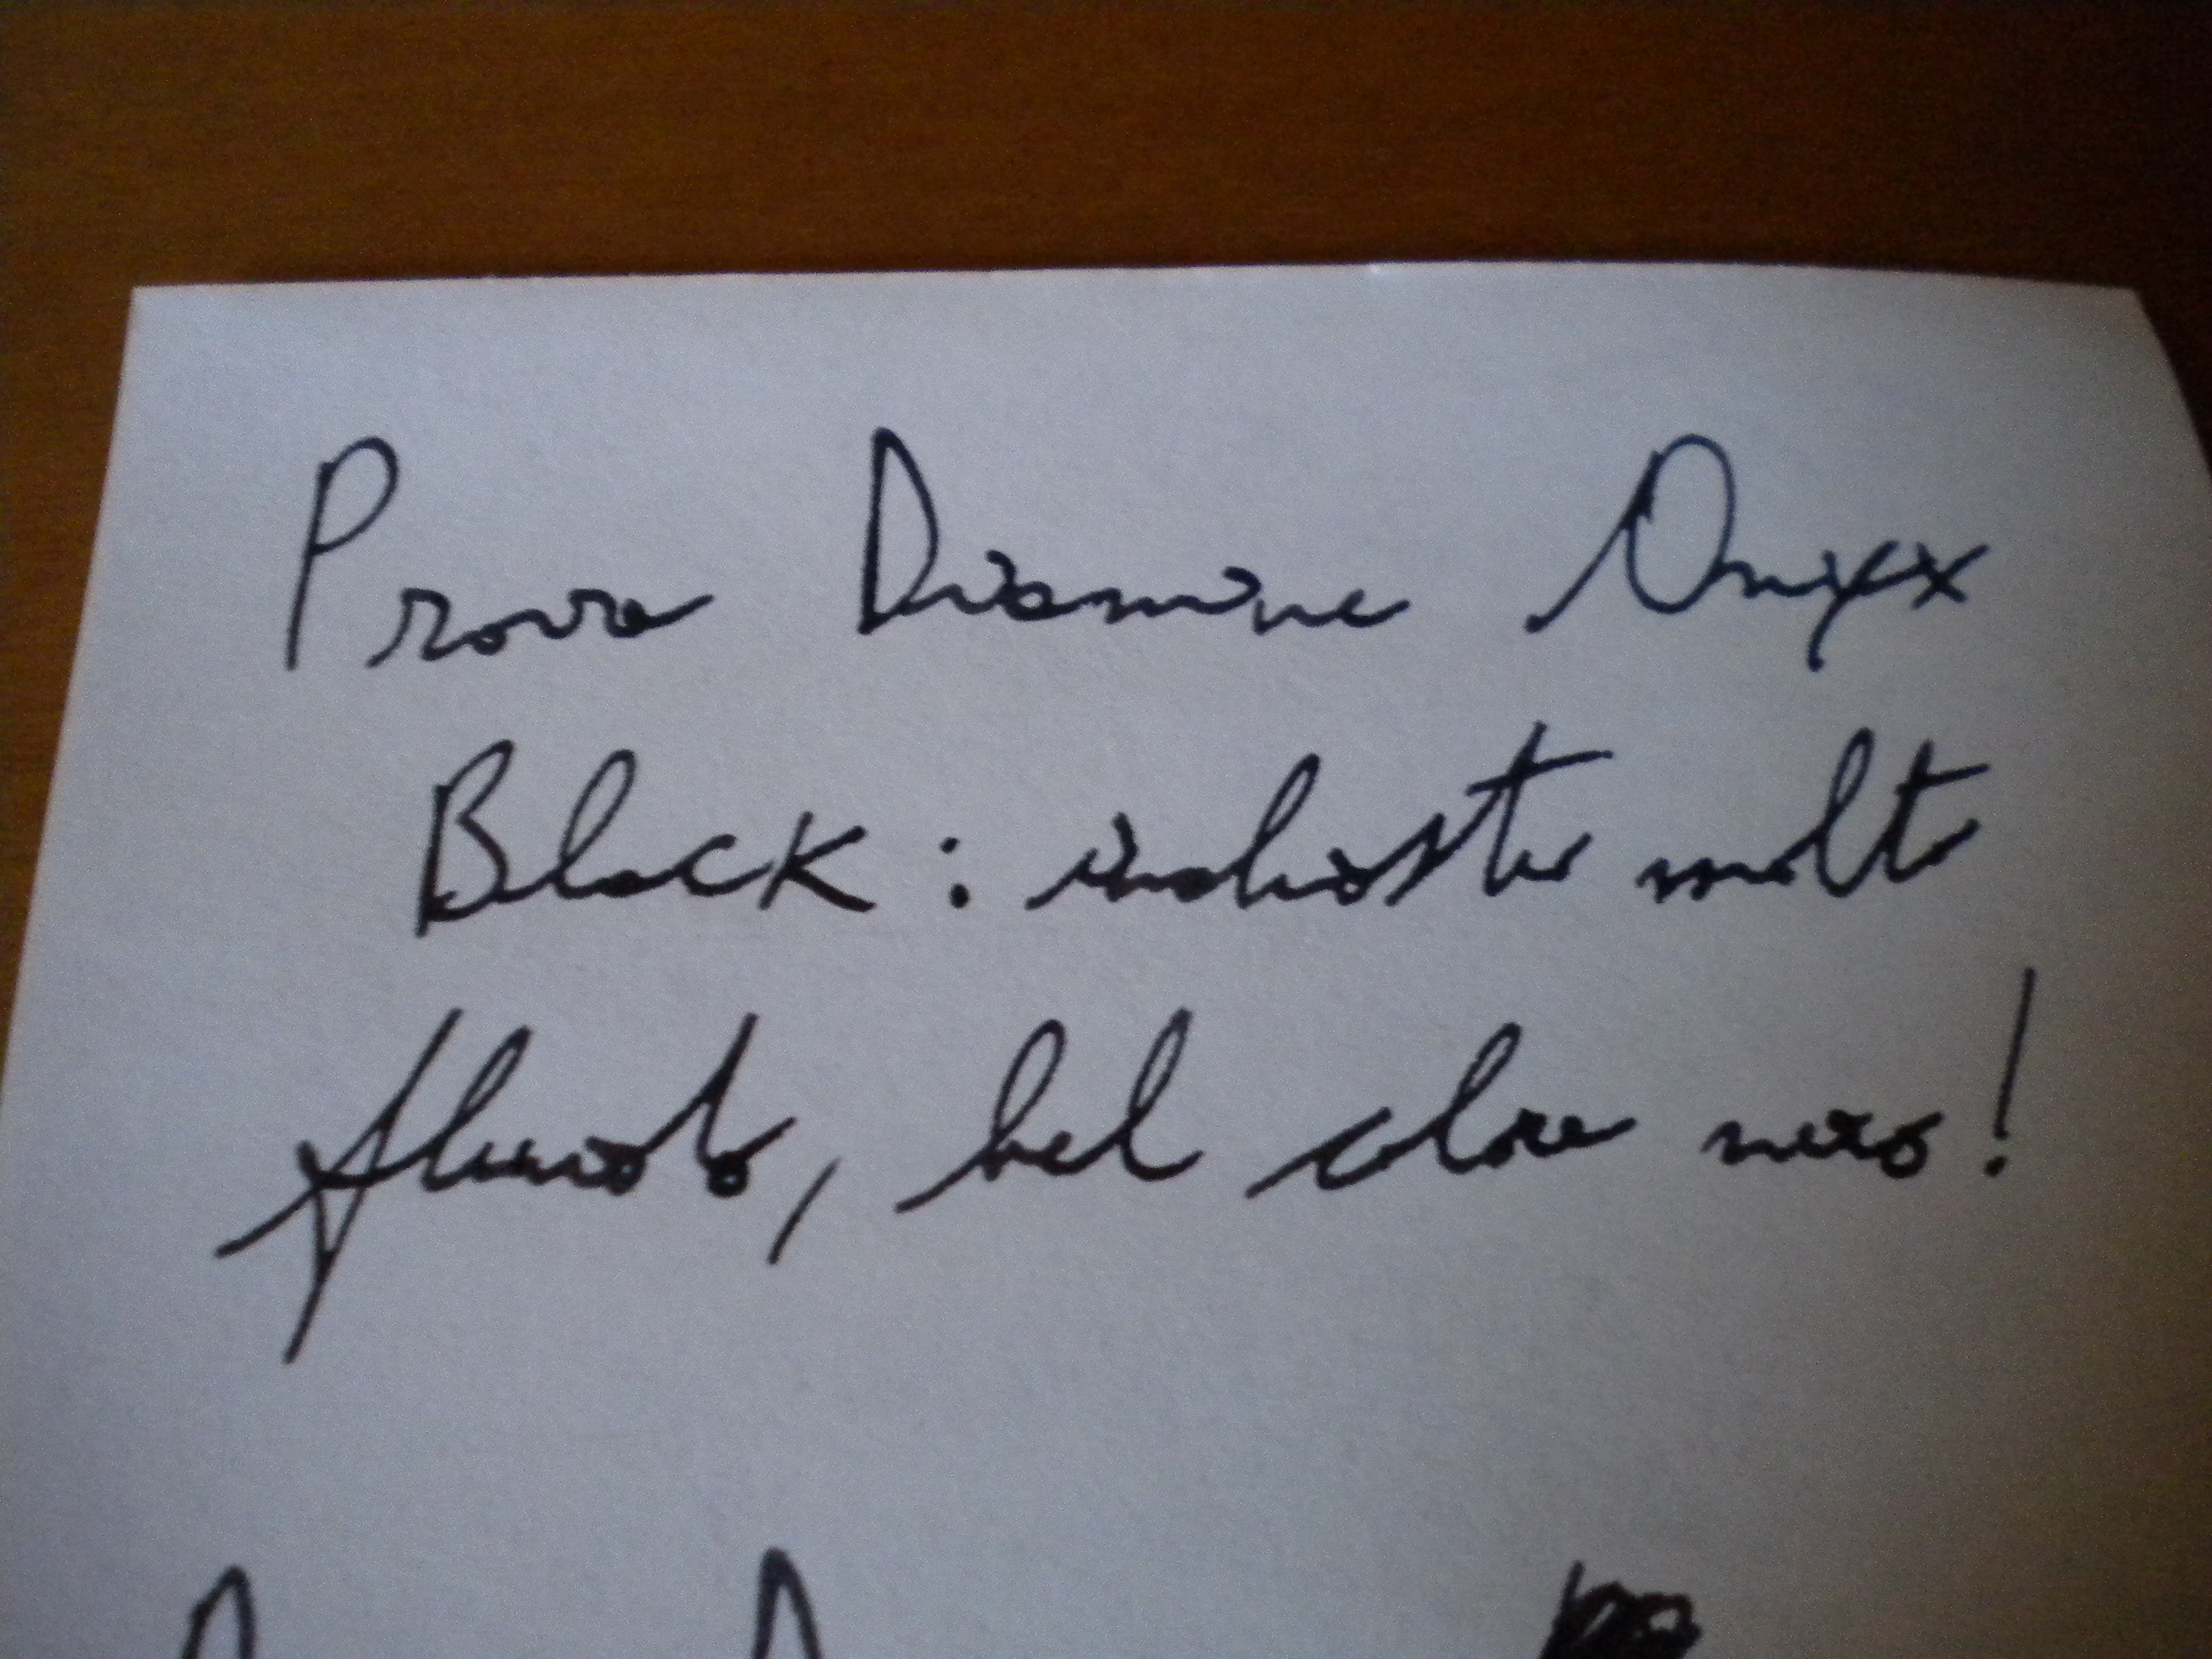 Prova Diamine Onyxx
Black : inchiostro molto
fluido, bel colore nero!